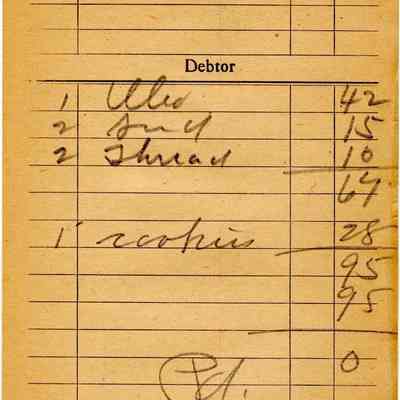 Debtor
1 42
2 15
2 Thread 10
67
1 cookies 28
95
95
0
Pd.